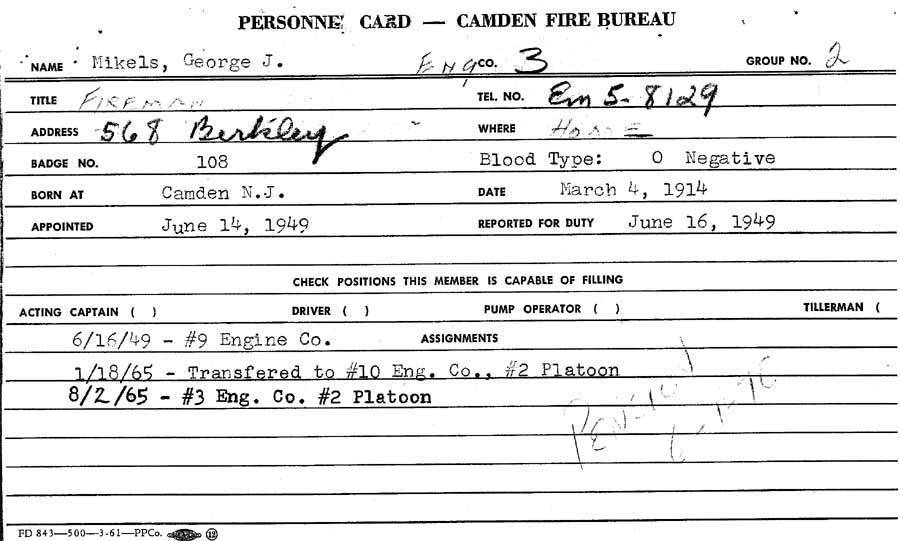 PERSONNEL CARD — CAMDEN FIRE BUREAU
NAME Mikels, George J. ENG CO. 3 GROUP NO. 2
TITLE FIREMAN TEL. NO. Em 5-8129
ADDRESS 568 Berkley WHERE HOME
BADGE NO. 108 Blood Type: O Negative
BORN AT Camden N.J. DATE March 4, 1914
APPOINTED June 14, 1949 REPORTED FOR DUTY June 16, 1949
CHECK POSITIONS THIS MEMBER IS CAPABLE OF FILLING
ACTING CAPTAIN ( ) DRIVER ( ) PUMP OPERATOR ( ) TILLERMAN (
6/16/49 - #9 Engine Co. ASSIGNMENTS
1/18/65 - Transfered to #10 Eng. Co., #2 Platoon
8/2/65 - #3 Eng. Co. #2 Platoon
PENSION
6-1-76
FD 843—500—3-61—PPCo. 12